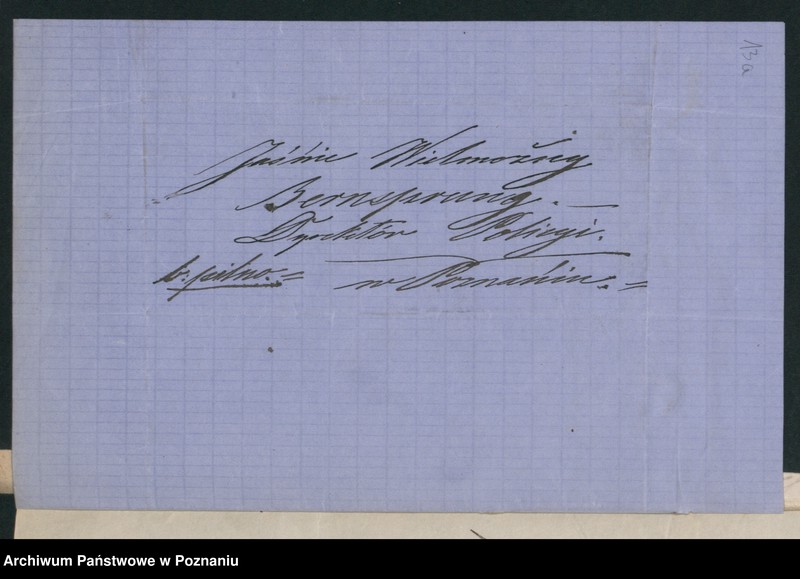 13a
Jaśnie Wielmożny
Bernsprung. —
Dyrektór Policyi.
b. pilno. =
w Poznaniu. =
Archiwum Państwowe w Poznaniu